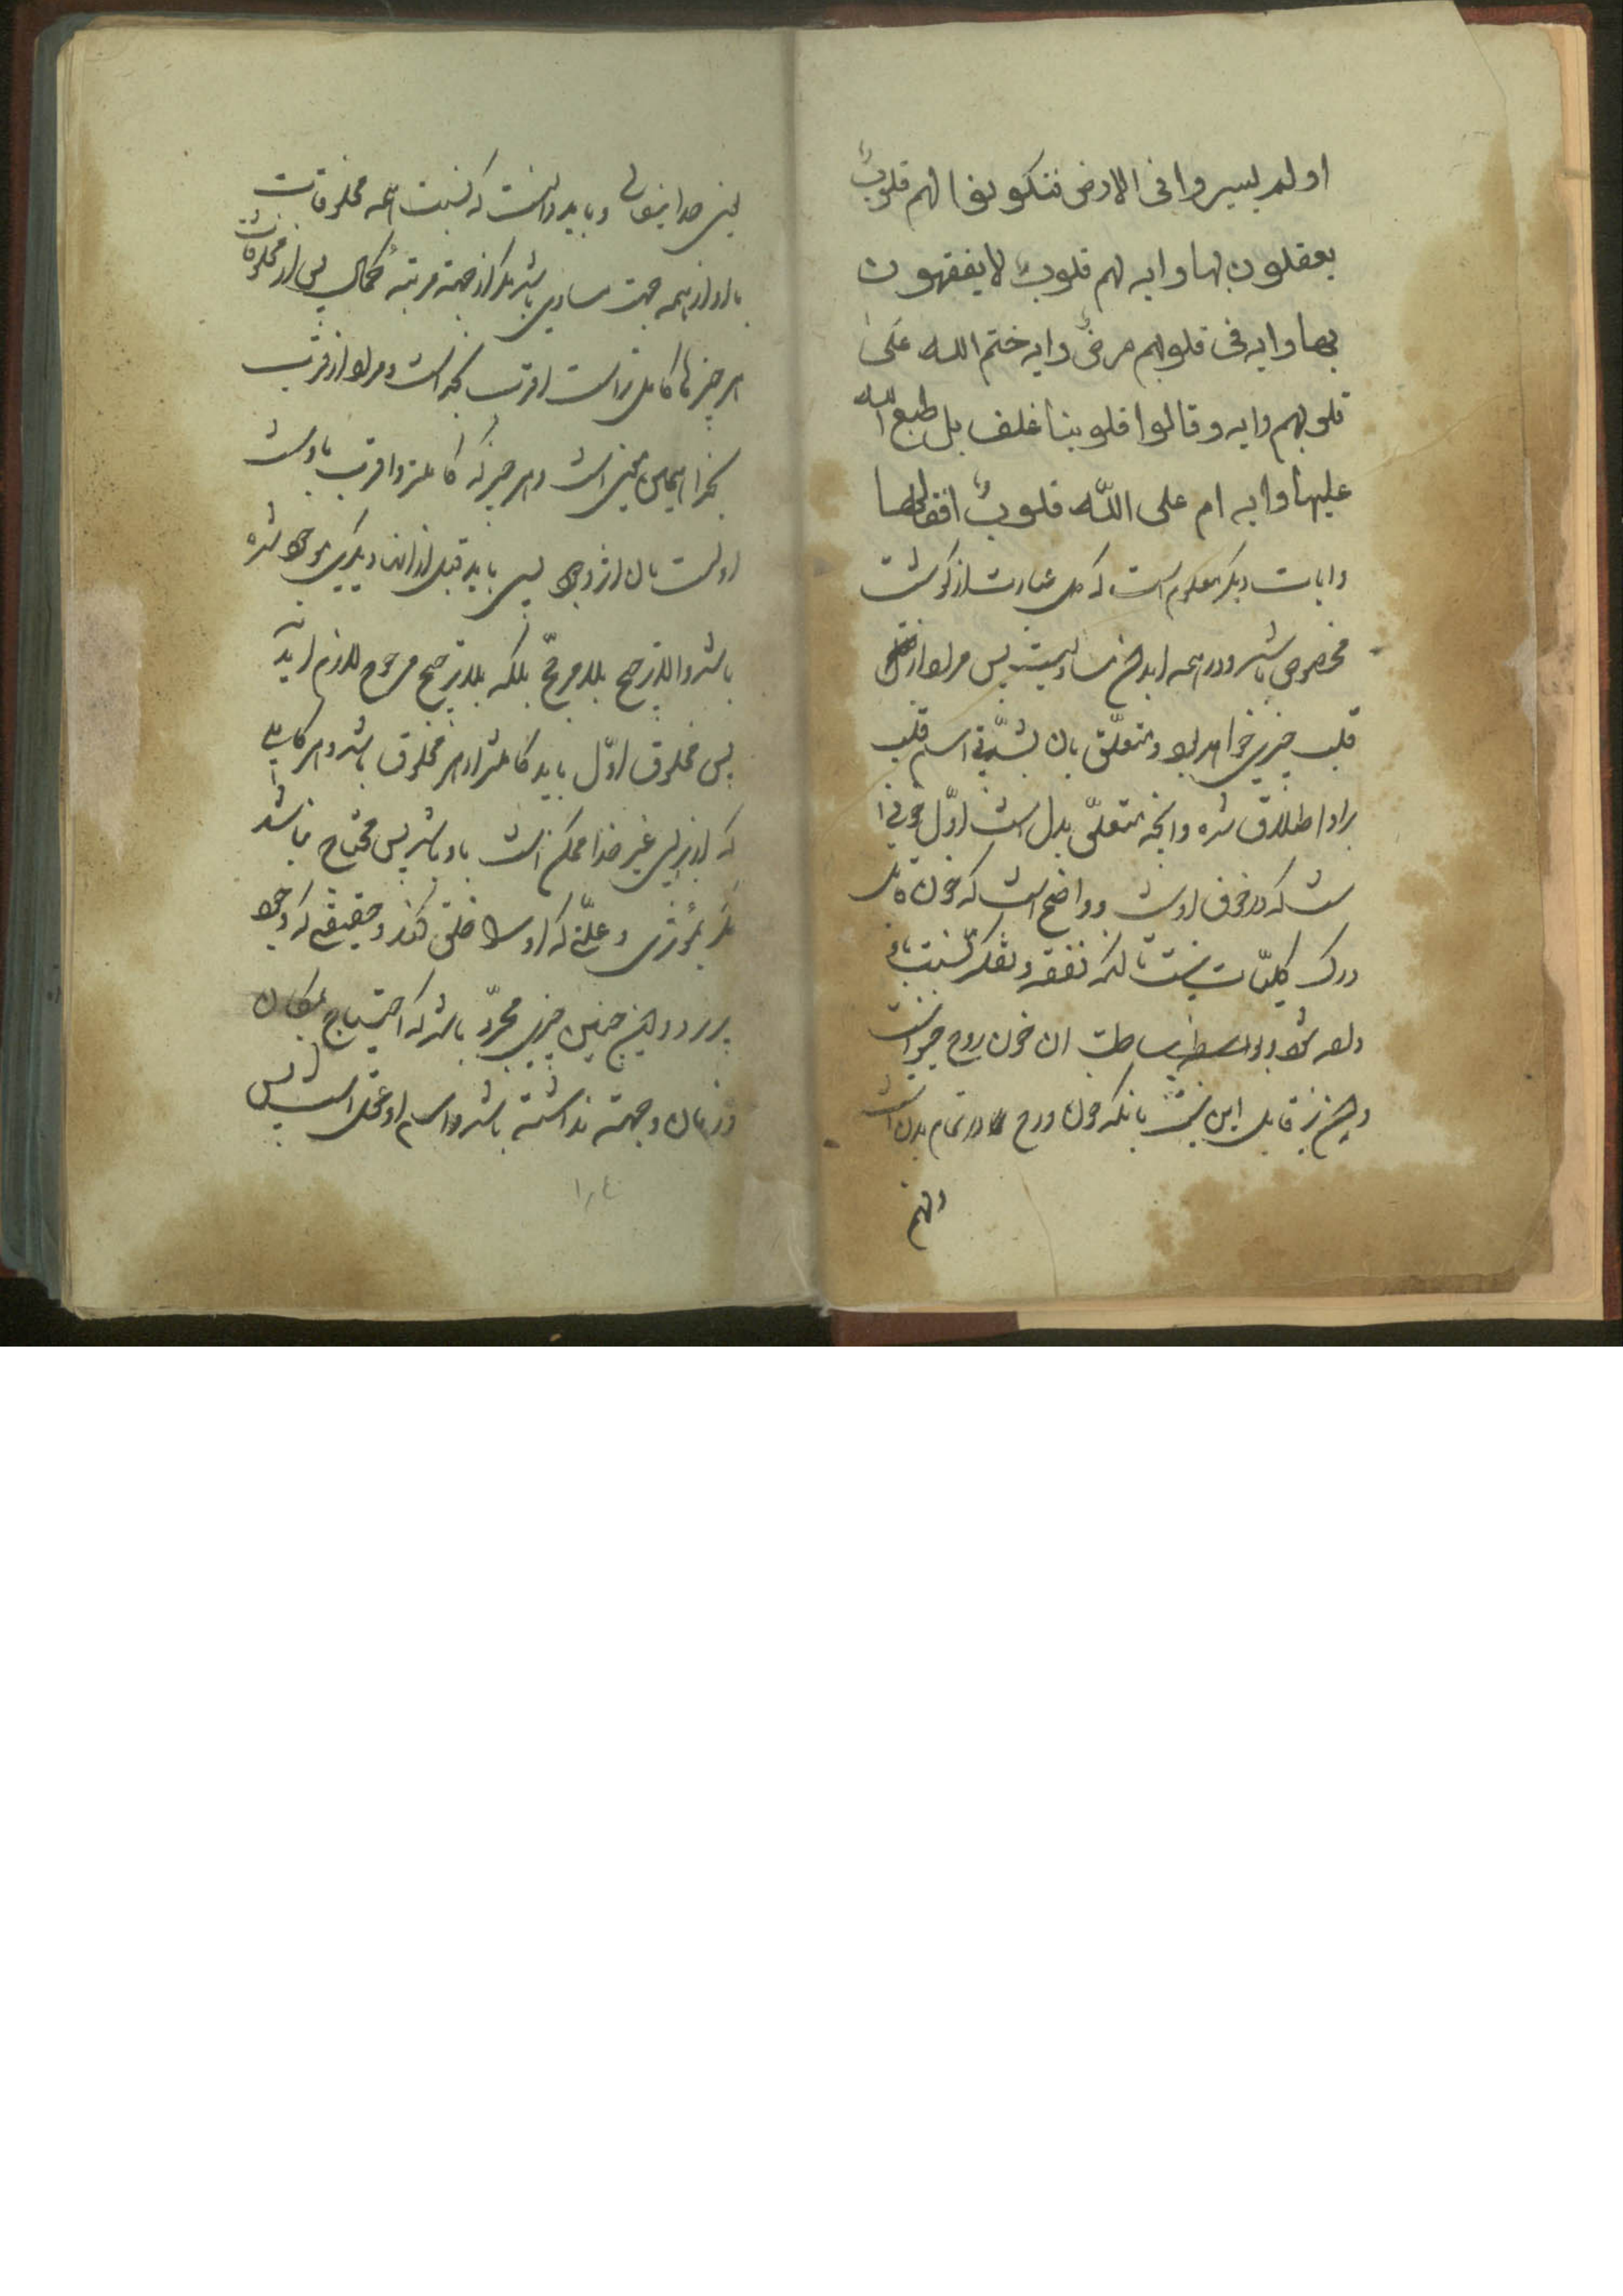 اولم یسیروا فی الارض فتکون لهم قلوبٌ
یعقلون بها وایه لهم قلوبٌ لا یفقهون
بها وایه فی قلوبهم مرضٌ وایه ختم الله علی
قلوبهم وایه وقالوا قلوبنا غلف بل طبع الله
علیها وایه ام علی قلوبٌ اقفالها
وایات دیگر معلوم است که عبارت از گوشت
مخصوص باشد ودر همه ابدان مساویست پس مراد از
قلب چیزی خواهد بود ومتعلّق بان بشدّتی اسم قلب
براو اطلاق شده وانچه متعلّق بدل است اوّل خونی ا
ست که در جوف اوست وواضح است که خون قابل
درک کلیّات نیست تا انکه تفقه وتفکر نسبت باو
داده شود وبواسطه بساطت ان خون روح حیوانیست
وان نیز قابل این نیست بانکه خون وروح در تمام بدن است
وانهم
یعنی خدایتعالی وباید دانست که نسبت همه مخلوقات
باو از همه جهت مساوی باشد مگر از جهة مرتبه کمال پس از مخلوقات
هر چیز که کامل تر است اقرب بخداست ومراد از قرب
بخدا همین معنی است وهر چیز که کاملتر واقرب باوست
اولست بان از وجود پس باید قبل از ان دیگری موجود شده
باشد والا ترجیح بلا مرجّح بلکه بلا ترجیح مرجوح لازم اید
پس مخلوق اوّل باید کاملتر از هر مخلوق باشد وهر کمالی
که از برای غیر خدا ممکن است باو باشد پس محتاج نباشد
مگر بمؤثری وعلّتی که او را خلق کند وحقیقتی که وجود
پذیرد واین چنین چیزی مجرّد باشد که احتیاج بمکان
وزمان وجهة نداشته باشد واسم او عقل است پس